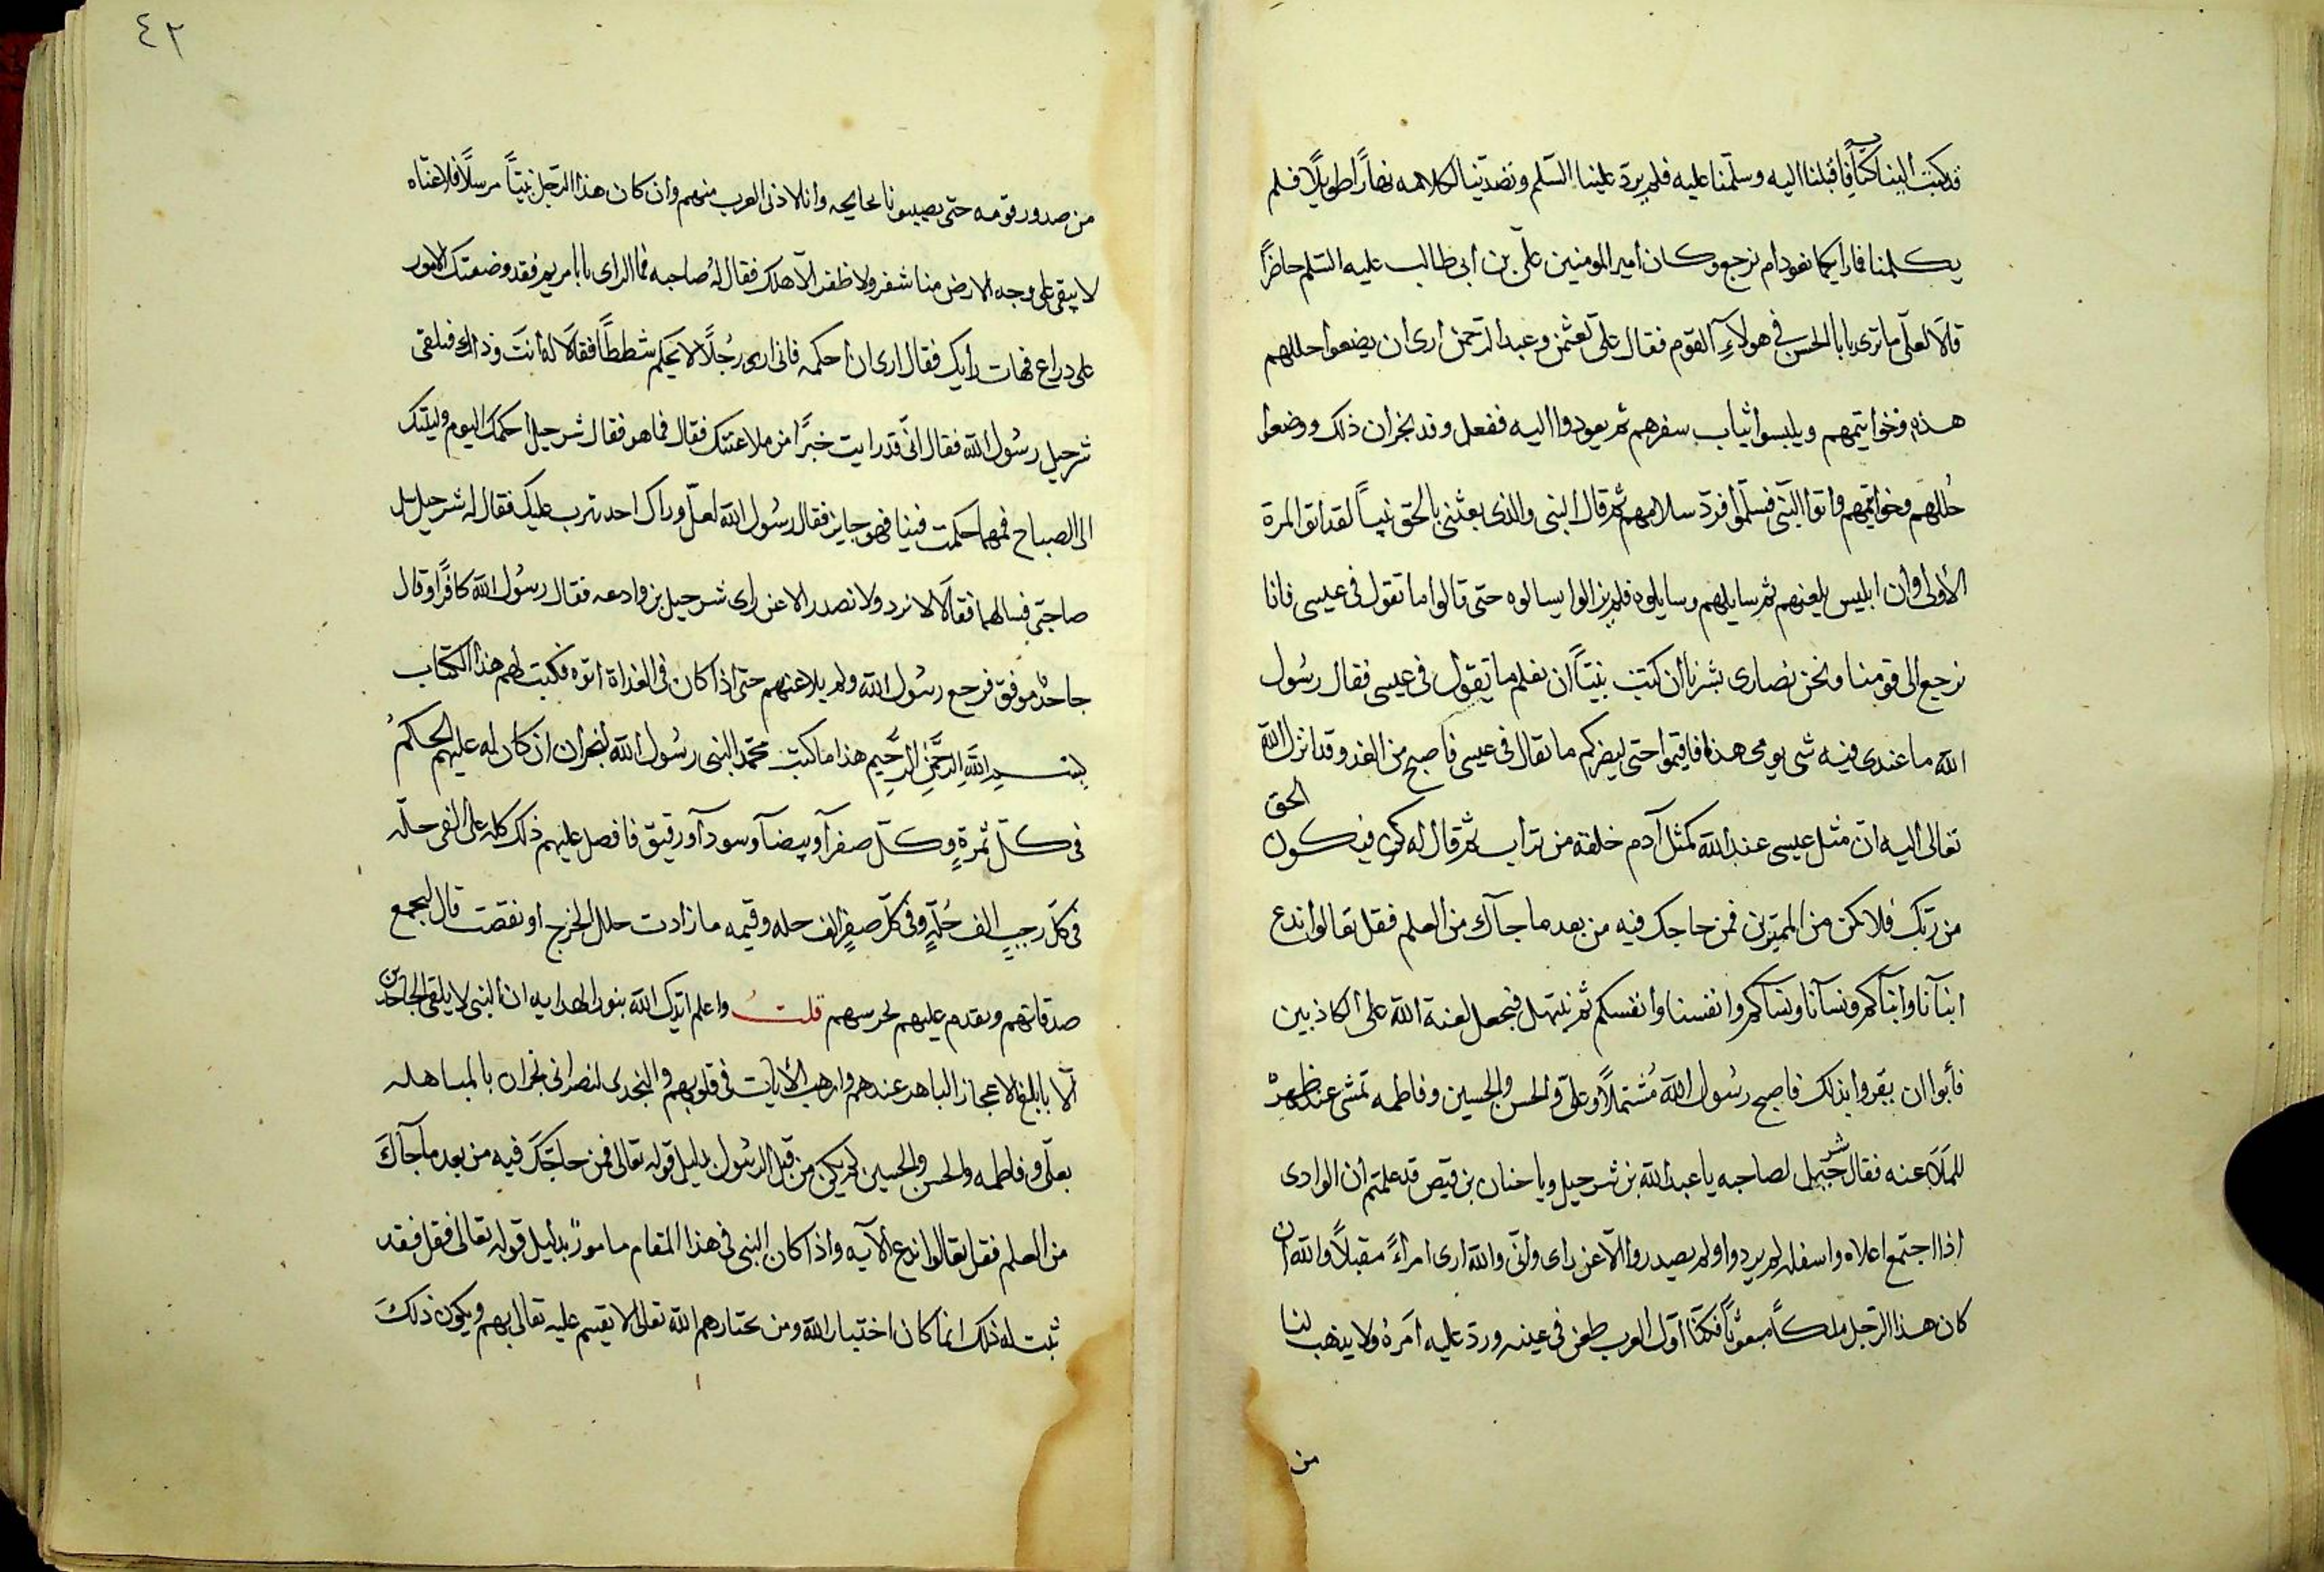 قد كتبت الينا كتابا فاقبلنا اليه وسلمنا عليه فلم يرد علينا السّلم وتصدّينا لكلامه نهاراً طويلاً فلم
يكلمنا فما رايكما نعود ام نرجع وكان امير المومنين علىّ بن ابى طالب عليه السّلم حاضراً
قالا لعلّى ما ترى يابا الحسن فى هولآءِ القوم فقال علىّ لعثمن وعبد الرّحمن ارى ان يضعوا حللهم
هذه وخواتيمهم ويلبسوا ثياب سفرهم ثم يعودوا اليه ففعل وفد نجران ذلك ووضعوا
حُللهم وخواتيمهم واتوا النّبى فسلّموا فردّ سلامهم ثم قال النبى والذى بعثنى بالحق نبيّاً لقد اتوا المرة
الأولى وان ابليس لمعهم ثم سايلهم وسايلوه فلم يزالوا يسالوه حتى قالوا ما تقول فى عيسى فانا
نرجع الى قومنا ونحن نصارى بشرنا ان كنت نبيّاً ان نعلم ما تقول فى عيسى فقال رسُول
الله ما عندى فيه شى يومى هذا فاقيموا حتى ليضركم ما تقال فى عيسى فاصبح من الغد وقد انزل الله
تعالى اليه انّ مثل عيسى عند الله كمثل آدم خلقه من تراب ثم قال له كن فيكون الحق
من ربّك فلا تكن من الممترين فمن حاجك فيه من بعد ما جآك من العلم فقل تعالوا ندع
ابنآنا وابنآكم ونسآنا ونسآكم وانفسنا وانفسكم ثم نبتهل فنجعل لعنة الله على الكاذبين
فأبوا ان يقروا بذلك فاصبح رسُول الله مُشتملاً وعلىّ والحسن والحسين وفاطمه تمشى عند ظهره
للملاعنه فقال شرحبيل لصاحبه يا عبد الله بن شرحيل ويا حنان بن قيص قد علمتم ان الوادى
اذا اجتمع اعلاه واسفله لم يردوا ولم يصدروا الّا عن راى وانّى والله ارى امراءً مقبلاً والله ان
كان هذا الرّجل ملكاً مبعوثاً فكنّا اوّل العرب طعن فى عينه وردّ عليه امرهُ ولا يذهب لنا
من
٤٢
من صدور قومه حتى يصيبونا بحايحه وانا لادنى العرب منهم وان كان هذا الرّجل نبيّاً مرسلاً فلاعنّاه
لا يبقى على وجه الارض منا شفر ولا ظفر الّا هلك فقال لهُ صاحبه فما الراى يابا مريم فقد وضعتك الامور
على دراع فهات رايك فقال ارى ان احكمه فانى ارى رجُلاً لا يحكم شططاً فقالا له انتَ وذاك فلقى
شرحيل رسُول الله فقال انّى قد رايت خبرًا من ملاعنتك فقال فما هو فقال شرحيل احكمك اليوم وليلتك
الى الصباح فمهما حكمت فينا فهو جايز فقال رسُول الله لعلّ وراك احد يثرب عليك فقال له شرحيل سل
صاحبىّ فسالهما فقالا لا نرد ولا نصدر الا عن راى شرحيل بن وادعه فقال رسُول الله كافرًا وقال
جاحدٌ موفق فرجع رسُول الله ولم يلاعنهم حتى اذا كان فى الغداة اتوه فكتب لهم هذا الكتاب
بسم اللهِ الرَّحمٰنِ الرَّحيمِ هذا ما كتب محمّد النبى رسُول الله لنجران ان كان له عليهم الحكمُ
فى كلّ ثمرةٍ وكلّ صفرآ وبيضآ وسودآ ورقيق فافصل عليهم ذلك كله على الفى حلّه
فى كلّ رجبٍ الف حُلّهٍ وفى كلّ صفرٍ الف حله وقيمه ما زادت حلل الخرج او نقصت قال ليجمع
صدقاتهم ويقدم عليهم بحرسهم قلت واعلم ايّدك الله بنور الهدايه ان النبى لا يلقى الجاحدين
الّا بابلغ الاعجاز الباهر عندهم وارهب الأيات فى قلوبهم والتحدى لنصرانى نجران بالمباهله
بعلّى وفاطمه والحسن والحسين لم يكن من قبل الرسُول بدليل قوله تعالى فمن حآجّكَ فيه من بعد مآ جآكَ
من العلم فقل تعالوا ندع الآيه واذا كان النبى فى هذا المقام مامورٌ بدليل قوله تعالى فقل فقد
ثبت له ذلك انما كان اختيار الله ومن يختارهم الله تعالى لا تقيم عليه تعالى بهم ويكون ذلكَ